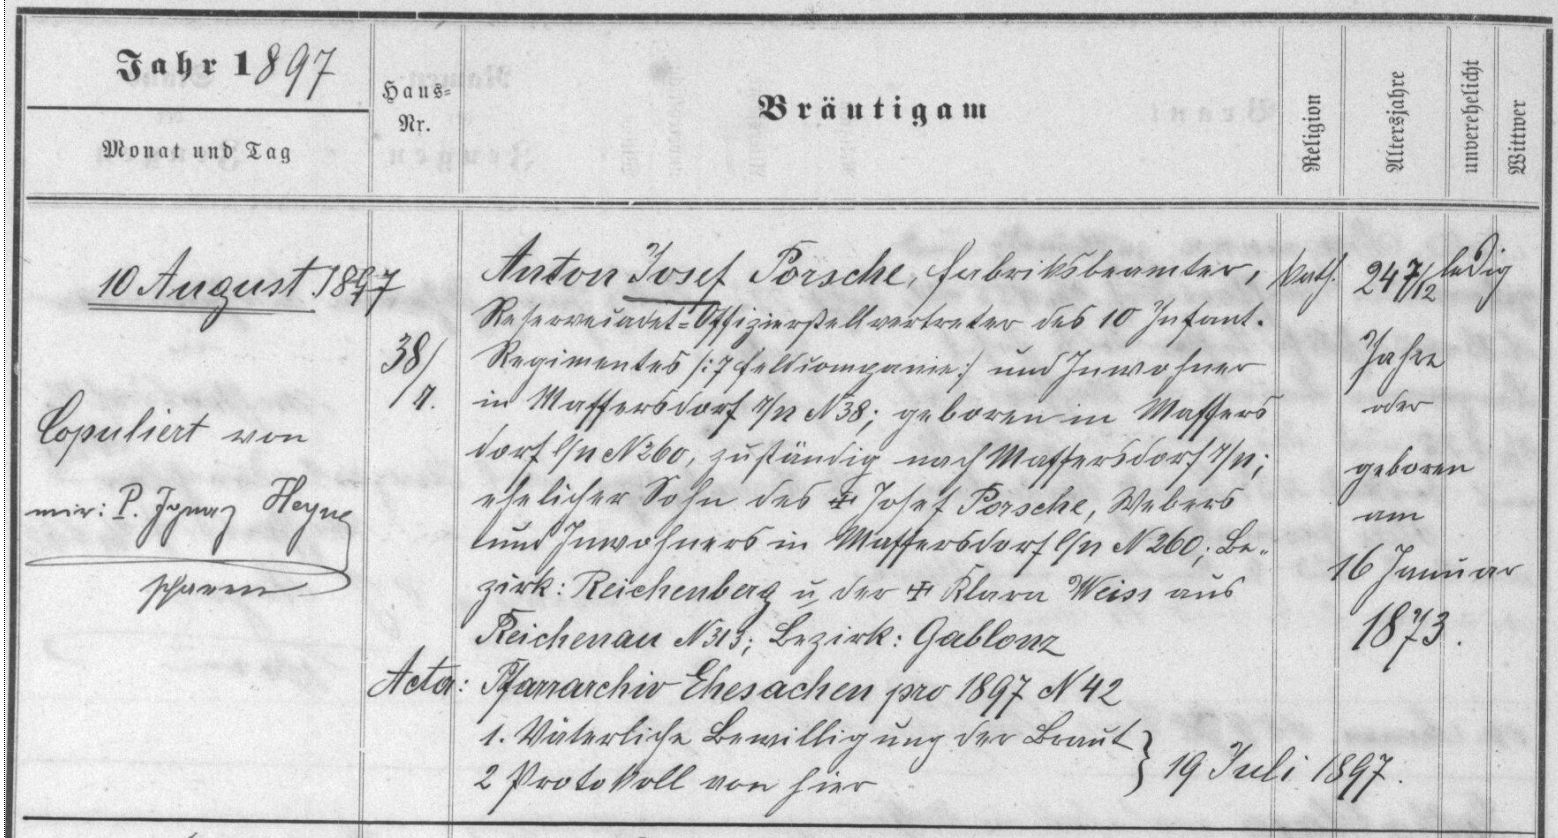 Jahr 1897
Monat und Tag
Haus=
Nr.
Bräutigam
Religion
Altersjahre
unverehelicht
Wittwer
10 August 1897
38/
/r.
Copuliert von
mir: P. Ignaz Heyne
Pfarrer
Anton Josef Porsche, Fabriksbeamter,
Reservecadet=Offizierstellvertreter des 10 Infant.
Regimentes /:7 Feldcompanie:/ und Inwohner
in Maffersdorf r/N N 38; geboren in Maffers
dorf l/N N 260, zuständig nach Maffersdorf r/N;
ehelicher Sohn des ✝ Josef Porsche, Webers
und Inwohners in Maffersdorf l/N N 260; Be„
zirk: Reichenberg u. der ✝ Klara Weiss aus
Reichenau N 313; Bezirk: Gablonz
Acta: Pfarrarchiv Ehesachen pro 1897 N 42
1. Väterliche Bewilligung der Braut
2 Protokoll von hier } 19 Juli 1897.
kath.
24 7/12
Jahre
oder
geboren
am
16 Januar
1873.
ledig